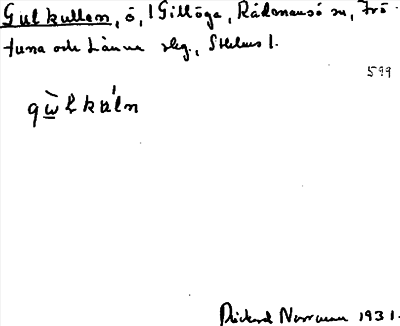 Gulkullen, ö, i Gillöga, Rådmansö sn, Frö-
tuna och Länna slg., Sthlms l.
599
Rickard Norrman 1931.